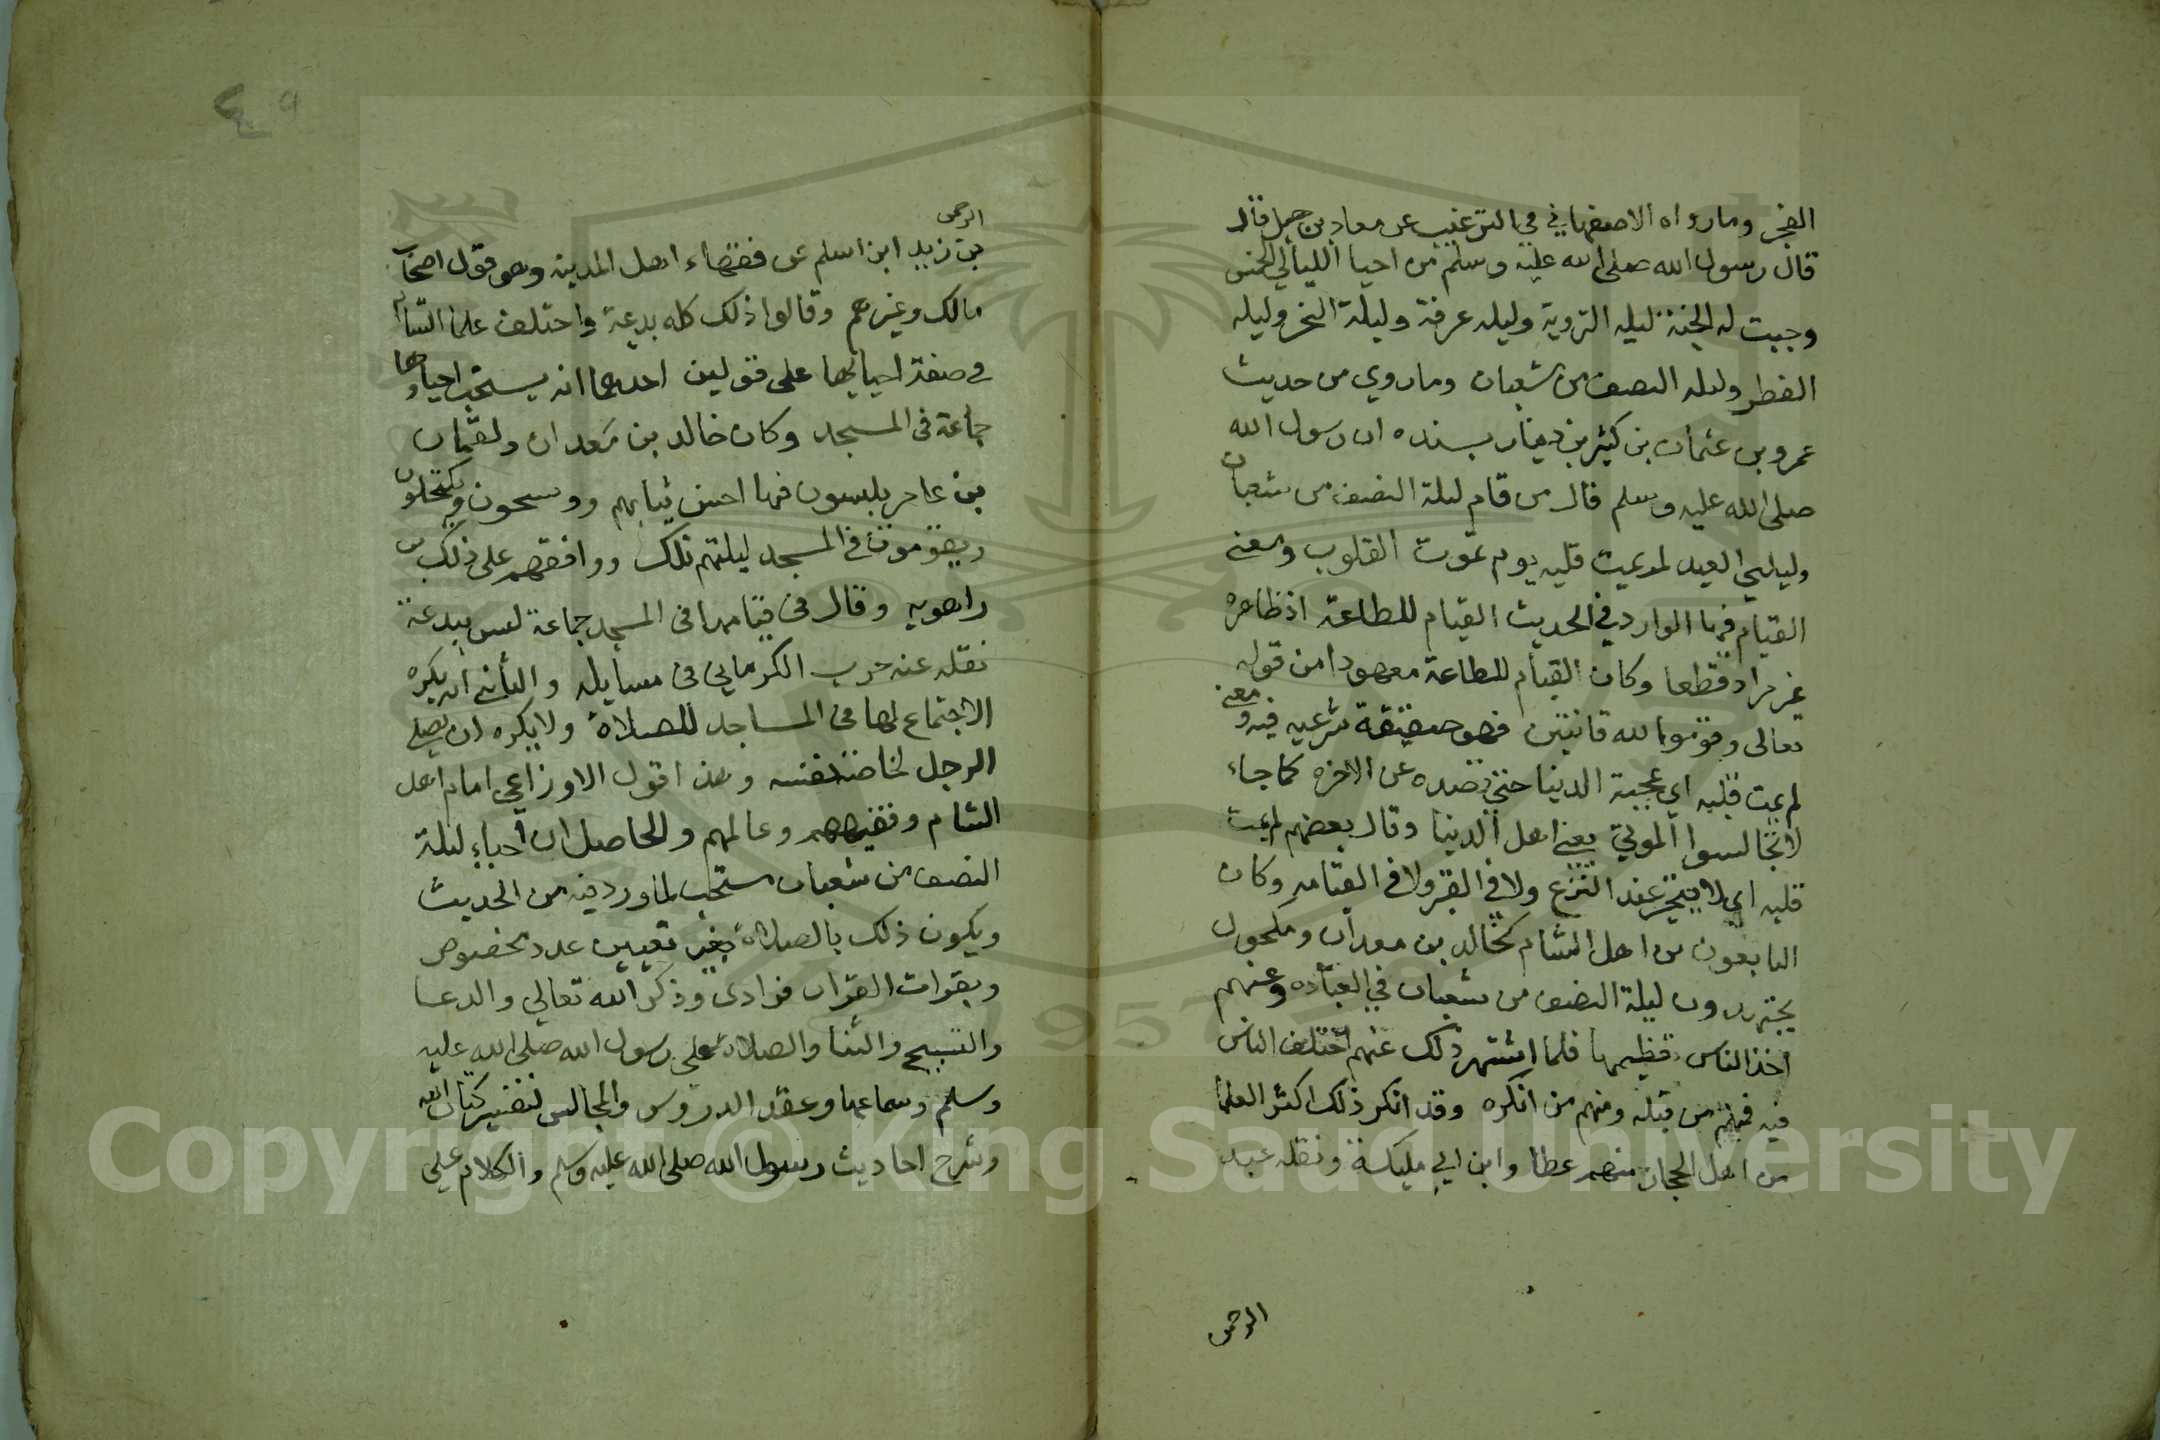 الفجر وما رواه الاصفهاني في الترغيب عن معاذ بن جبل قال
قال رسول الله صلى الله عليه وسلم من احيا الليالي الخمس
وجبت له الجنة ليله التروية وليله عرفة وليلة النحر وليله
الفطر وليله النصف من شعبان وما روي من حديث
عمرو بن عثمان بن كثير بن دينار بسنده ان رسول الله
صلى الله عليه وسلم قال من قام ليلة النصف من شعبان
وليلتي العيد لم يمت قلبه يوم تموت القلوب ومعنى
القيام فيها الوارد في الحديث القيام للطاعة اذ ظاهره
غير مراد قطعا وكان القيام للطاعة معهودا من قوله
تعالى وقوموا لله قانتين فهو حقيقة شرعيه فيه ومعنى
لم يمت قلبه اي بمحبة الدنيا حتى تصده عن الاخره كما جاء
لا تجالسوا الموتى يعني اهل الدنيا وقال بعضهم لم يمت
قلبه اي لا يتحير عند النزع ولا في القبر ولا في القيامه وكان
التابعون من اهل الشام كخالد بن معدان ومكحول
يجتهدون ليلة النصف من شعبان في العباده وعنهم
اخذ الناس تعظيمها فلما اشتهر ذلك عنهم اختلف الناس
فيه فمنهم من قبله ومنهم من انكره وقد انكر ذلك اكثر العلما
من اهل الحجاز منهم عطا وابن ابي مليكة ونقله عبد
الرحمن
٤٩
الرحمن
بن زيد ابن اسلم عن فقهاء اهل المدينه وهو قول اصحاب
مالك وغيرهم وقالوا ذلك كله بدعة واختلف علما الشام
في صفة احيائها على قولين احدهما انه يستحب احياوها
جماعة في المسجد وكان خالد بن معدان ولقمان
بن عامر يلبسون فيها احسن ثيابهم ويكتحلون
ويقومون في المسجد ليلتهم تلك ووافقهم على ذلك بن
راهويه وقال في قيامها في المسجد جماعة ليس ببدعة
نقله عنه حرب الكرماني في مسايله والثاني انه يكره
الاجتماع لها في المساجد للصلاة ولا يكره ان يصلي
الرجل لخاصة نفسه وهذا قول الاوزاعي امام اهل
الشام وفقيههم وعالمهم والحاصل ان احياء ليلة
النصف من شعبان مستحب لما ورد فيه من الحديث
ويكون ذلك بالصلاة بغير تعيين عدد مخصوص
وبقرات القران فرادى وذكر الله تعالي والدعا
والتسبيح والثنا والصلاة على رسول الله صلى الله عليه
وسلم وسماعها وعقد الدروس والمجالس لتفسير كتاب الله
وشرح احاديث رسول الله صلى الله عليه وسلم والكلام على
Copyright © King Saud University
1957